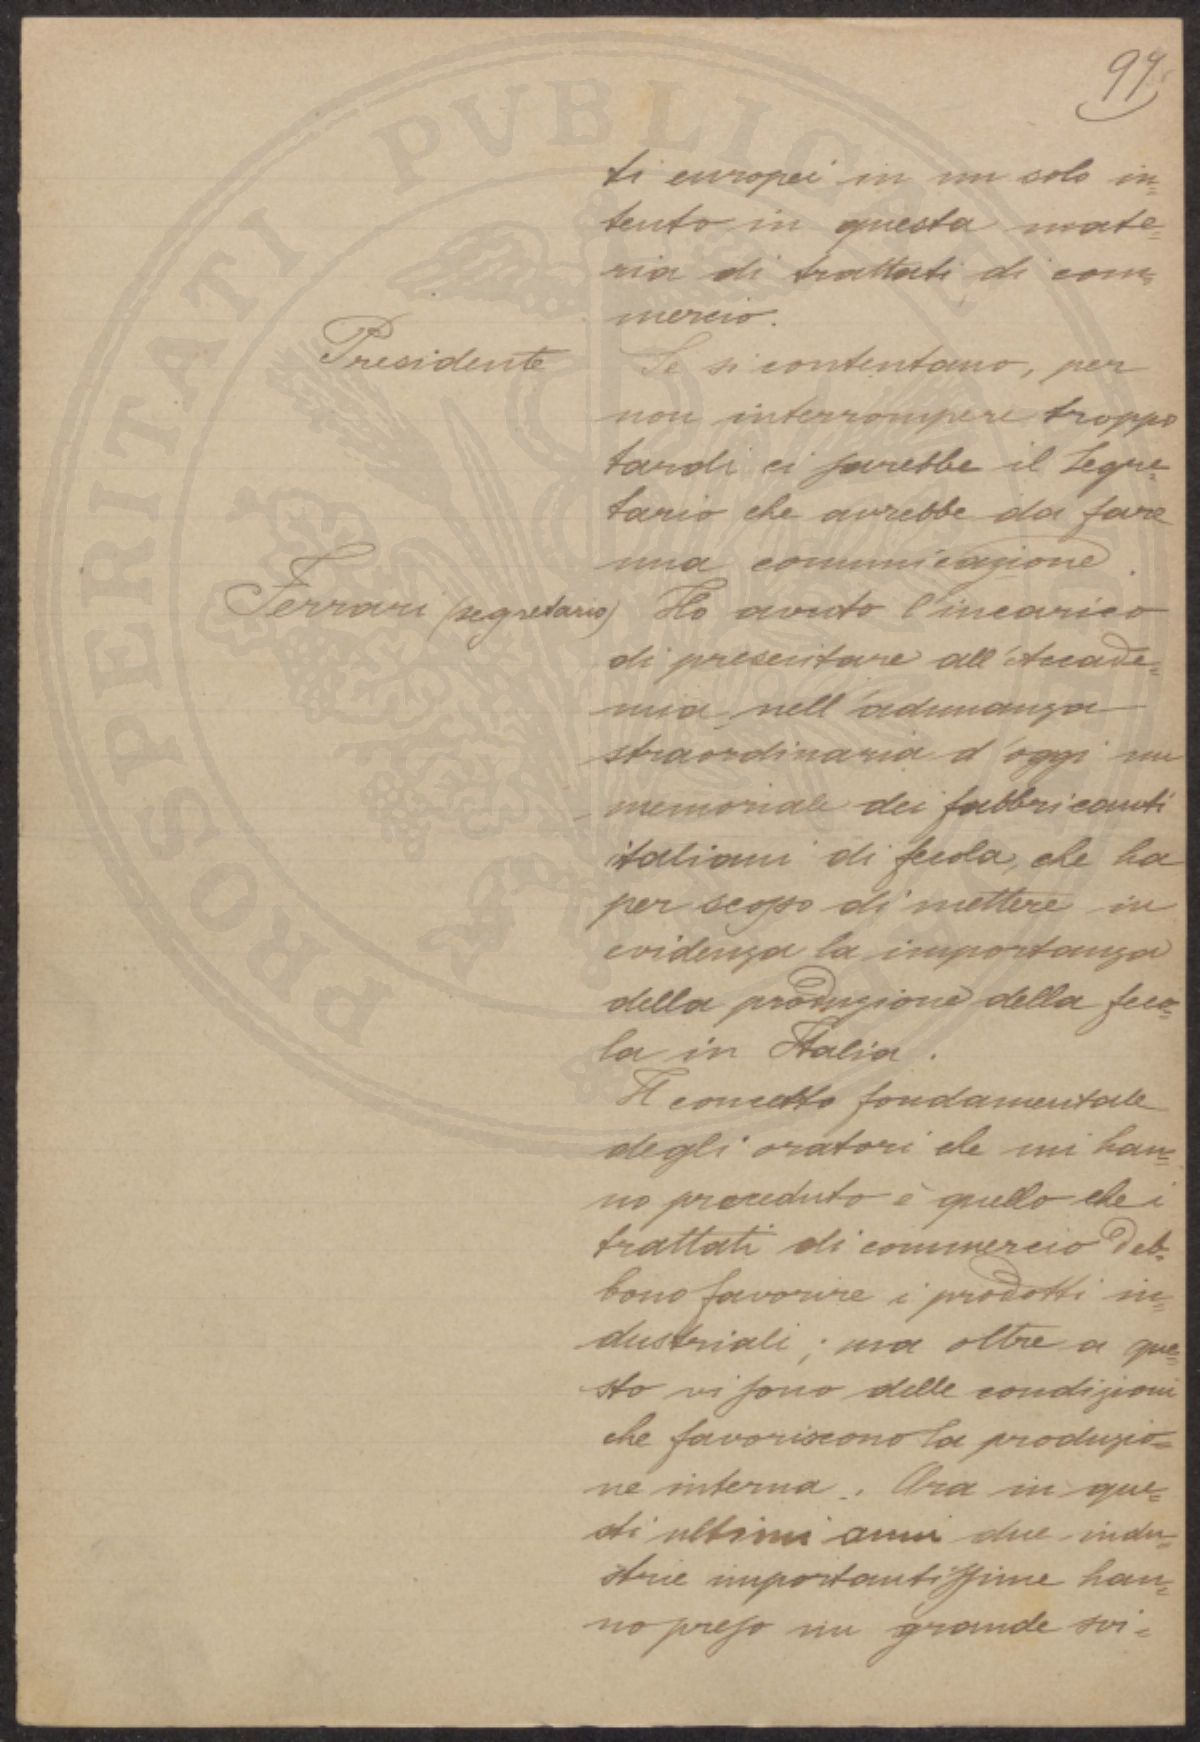 97
ti europei in un solo in=
tento in questa mate=
ria di trattati di com=
mercio.
Presidente Se si contentano, per
non interrompere troppo
tardi ci sarebbe il Segre=
tario che avrebbe da fare
una comunicazione.
Ferrari (segretario) Ho avuto l'incarico
di presentare all'Accade=
mia, nell'adunanza
straordinaria d'oggi un
memoriale dei fabbricanti
italiani di fecola, che ha
per scopo di mettere in
evidenza la importanza
della produzione della feco=
la in Italia.
Il concetto fondamentale
degli oratori che mi han=
no preceduto è quello che i
trattati di commercio deb=
bono favorire i prodotti in=
dustriali; ma oltre a que=
sto vi sono delle condizioni
che favoriscono la produzio=
ne interna. Ora in que=
sti ultimi anni due indu=
strie importantissime han=
no preso un grande svi=
PROSPERITATI PVBLICAE